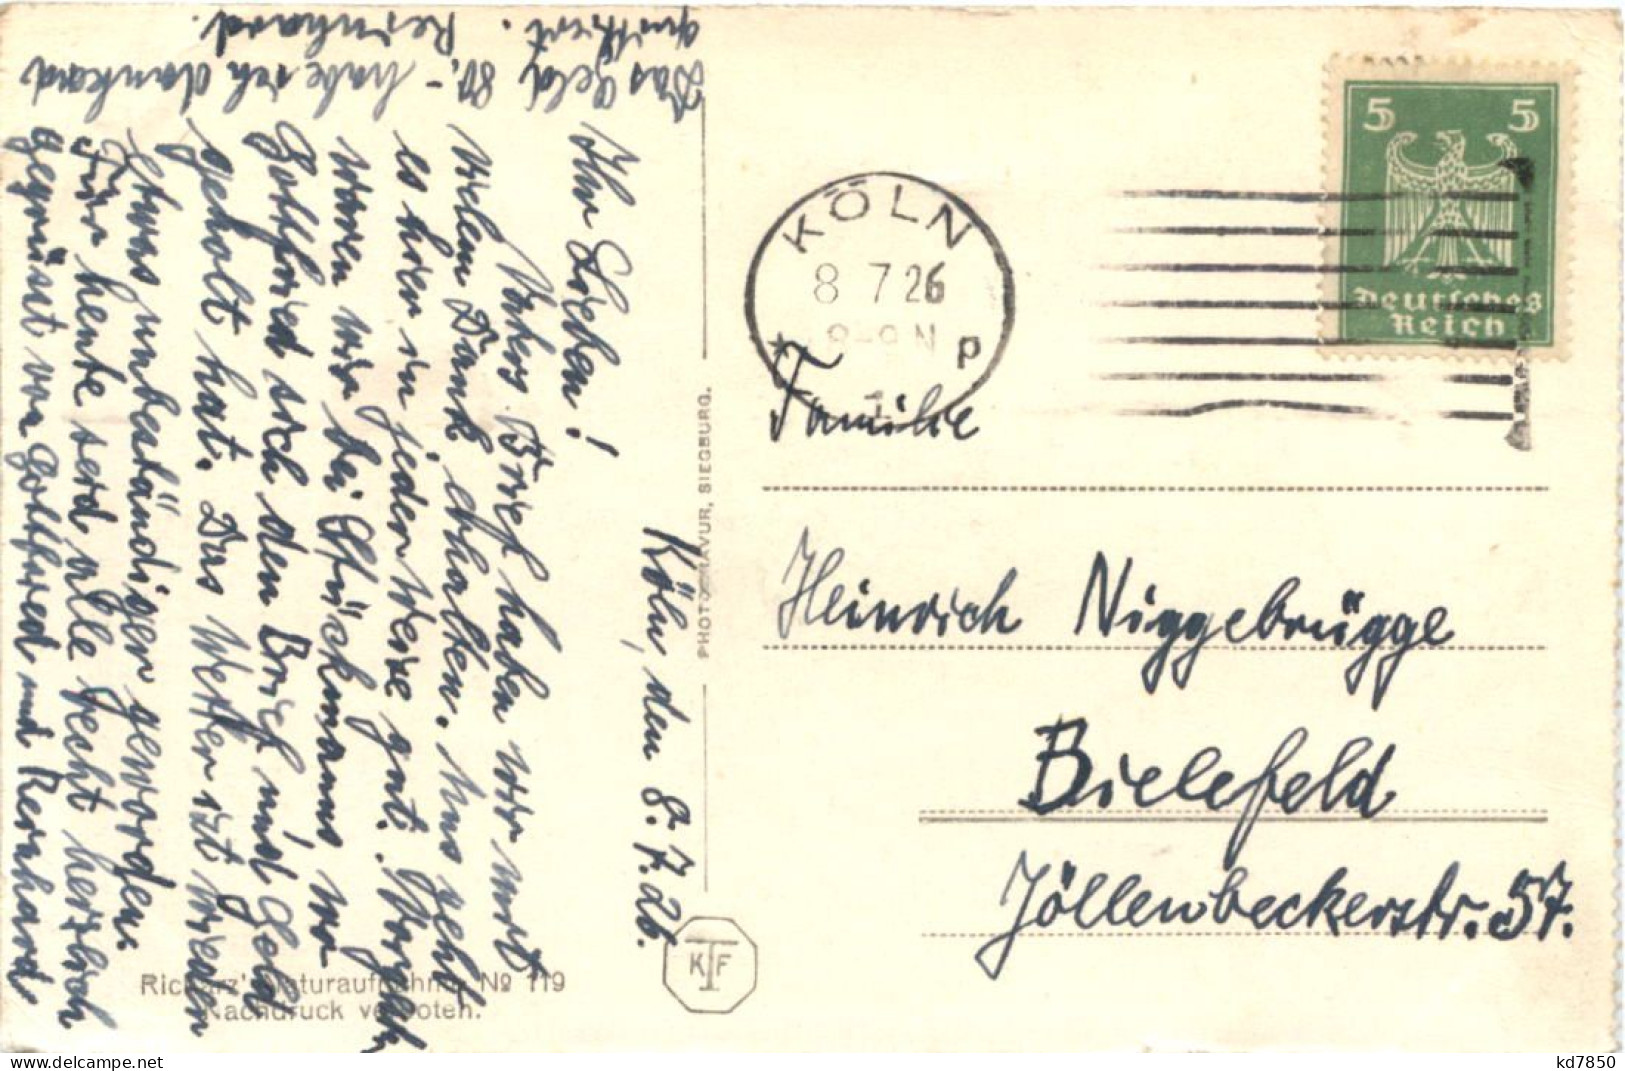 Köln, den 8.7.26.
Ihr Lieben!
Vaters Brief haben wir mit
vielem Dank erhalten. Uns geht
es hier in jeder Weise gut.
waren wir bei Stückmanns, wo
Gottfried sich den Brief und Geld
geholt hat. Das Wetter ist wieder
etwas unbeständiger geworden.
Für heute seid alle recht herzlich
gegrüßt von Gottfried und Reinhard
Das Geld 80,- habe ich dankend
quittiert. Reinhard.
PHOTOGRAVUR, SIEGBURG.
KTF
Rickarz' Naturaufnahme No 119
Nachdruck verboten.
5 5
Deutsches
Reich
KÖLN
8 7 26
8-9 N
p
1
Familie
Heinrich Niggebrügge
Bielefeld
Jöllenbeckerstr. 57.
kd7850